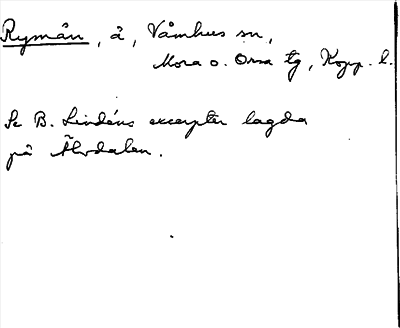 Rymån, å, Våmhus sn,
Mora o. Orsa tg, Kopp. l.
Se B. Lindéns excerpter lagda
på Älvdalen.